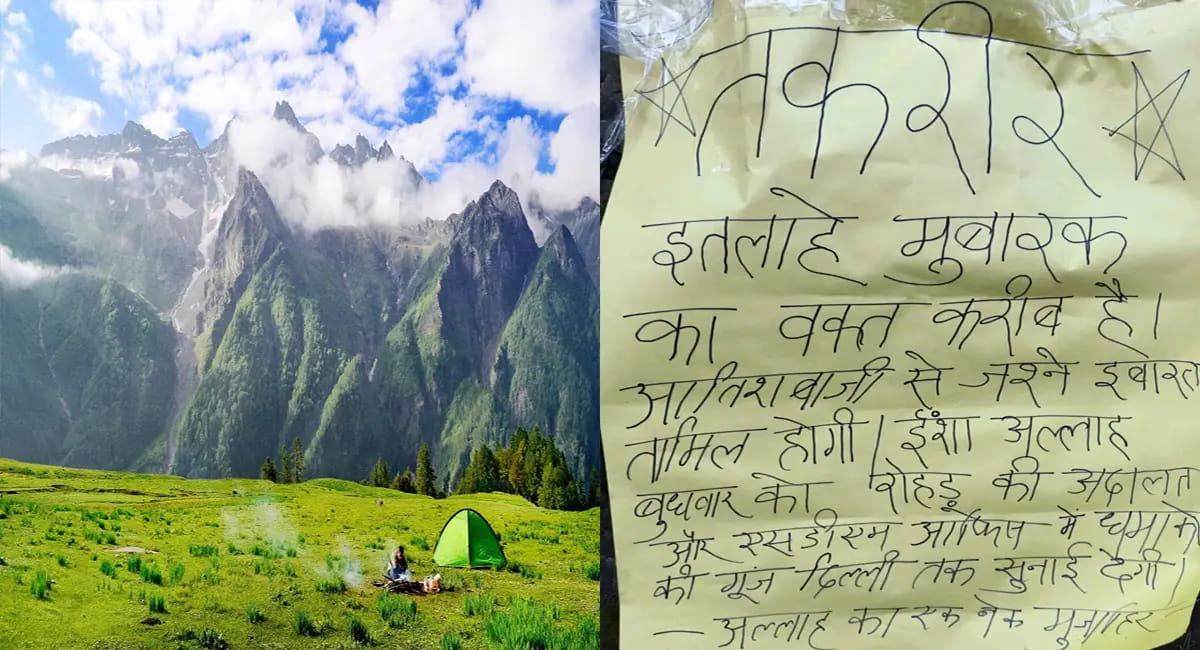 तकरीर
इतलाहे मुबारक
का वक्त करीब है।
आतिशबाजी से जश्ने इबारत
तामिल होगी। ईंशा अल्लाह
बुधवार को रोहडू की अदालत
और एसडीएम आफिष में धमाके
की गूंज दिल्ली तक सुनाई देगी।
— अल्लाह का एक नेक मुजाहिर